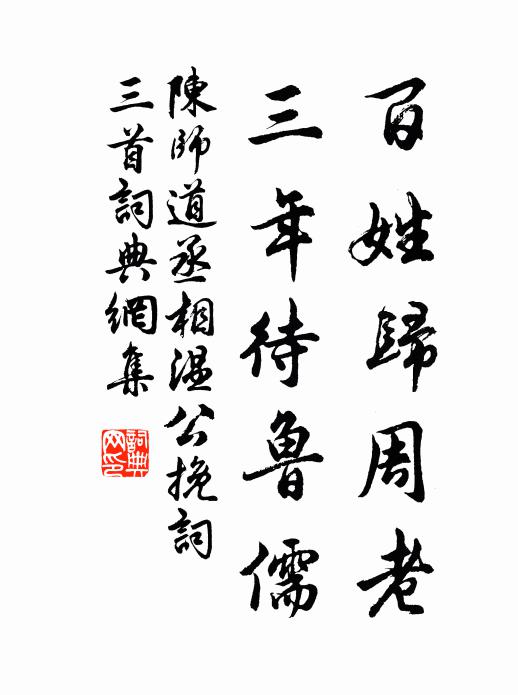 百姓歸周老
三年待魯儒
陳師道丞相温公挽詞
三首詞典網集
詞典网印